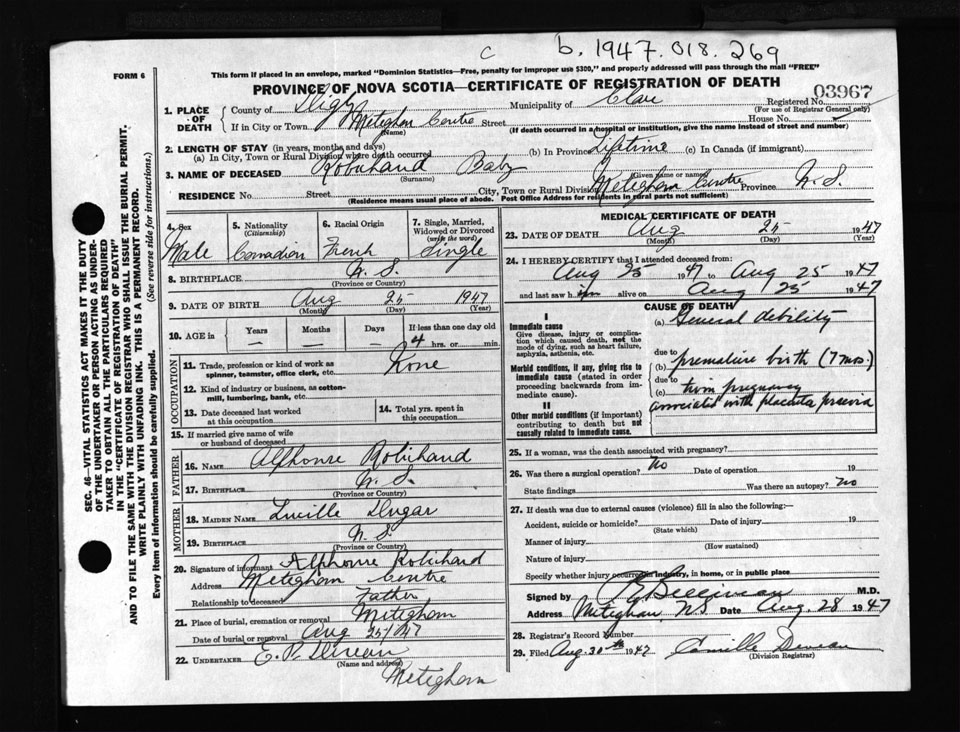 c b. 1947. 018. 269
FORM 6
This form if placed in an envelope, marked "Dominion Statistics—Free, penalty for improper use $300," and properly addressed will pass through the mail "FREE"
PROVINCE OF NOVA SCOTIA—CERTIFICATE OF REGISTRATION OF DEATH
03967
1. PLACE OF DEATH
County of Digby Municipality of Clare Registered No.
(For use of Registrar General only)
If in City or Town Meteghan Centre Street House No.
(Name) (If death occurred in a hospital or institution, give the name instead of street and number)
2. LENGTH OF STAY (in years, months and days)
(a) In City, Town or Rural Division where death occurred (b) In Province Lifetime (c) In Canada (if immigrant)
3. NAME OF DECEASED Robichaud Baby
(Surname) (Given name or names)
RESIDENCE No. Street City, Town or Rural Division Meteghan Centre Province N.S.
(Residence means usual place of abode. Post Office Address for residents in rural parts not sufficient)
4. Sex Male
5. Nationality (Citizenship) Canadian
6. Racial Origin French
7. Single, Married, Widowed or Divorced (write the word) Single
8. BIRTHPLACE N.S.
(Province or Country)
9. DATE OF BIRTH Aug 25 1947
(Month) (Day) (Year)
10. AGE in Years Months Days If less than one day old
4 hrs. or min.
OCCUPATION
11. Trade, profession or kind of work as spinner, teamster, office clerk, etc. None
12. Kind of industry or business, as cotton-mill, lumbering, bank, etc.
13. Date deceased last worked at this occupation
14. Total yrs. spent in this occupation
15. If married give name of wife or husband of deceased
FATHER
16. NAME Alphonse Robichaud
17. BIRTHPLACE N.S.
(Province or Country)
MOTHER
18. MAIDEN NAME Lucille Dugas
19. BIRTHPLACE N.S.
(Province or Country)
20. Signature of informant Alphonse Robichaud
Address Meteghan Centre
Relationship to deceased Father
21. Place of burial, cremation or removal Meteghan
Date of burial or removal Aug 25/47
22. UNDERTAKER E. P.
(Name and address)
Meteghan
MEDICAL CERTIFICATE OF DEATH
23. DATE OF DEATH Aug 25 1947
(Month) (Day) (Year)
24. I HEREBY CERTIFY that I attended deceased from:
Aug 25 1947 to Aug 25 1947
and last saw him alive on Aug 25 1947
CAUSE OF DEATH
I
Immediate cause
Give disease, injury or complication which caused death, not the mode of dying, such as heart failure, asphyxia, asthenia, etc.
(a) General debility
Morbid conditions, if any, giving rise to immediate cause (stated in order proceeding backwards from immediate cause).
due to
(b) premature birth (7 mos.)
due to
(c) twin pregnancy
associated with placenta praevia
II
Other morbid conditions (if important) contributing to death but not causally related to immediate cause.
25. If a woman, was the death associated with pregnancy?
26. Was there a surgical operation? No Date of operation 19
State findings Was there an autopsy? No
27. If death was due to external causes (violence) fill in also the following:—
Accident, suicide or homicide? Date of injury 19
(State which)
Manner of injury
(How sustained)
Nature of injury
Specify whether injury occurred in industry, in home, or in public place
Signed by M.D.
Address Meteghan, NS Date Aug. 28 1947
28. Registrar's Record Number
29. Filed Aug. 30th 1947 Camille
(Division Registrar)
SEC. 46—VITAL STATISTICS ACT MAKES IT THE DUTY
OF THE UNDERTAKER OR PERSON ACTING AS UNDERTAKER TO OBTAIN ALL THE PARTICULARS REQUIRED
IN THE "CERTIFICATE OF REGISTRATION OF DEATH"
AND TO FILE THE SAME WITH THE DIVISION REGISTRAR WHO SHALL ISSUE THE BURIAL PERMIT.
WRITE PLAINLY WITH UNFADING INK. THIS IS A PERMANENT RECORD.
Every item of information should be carefully supplied. (See reverse side for instructions.)